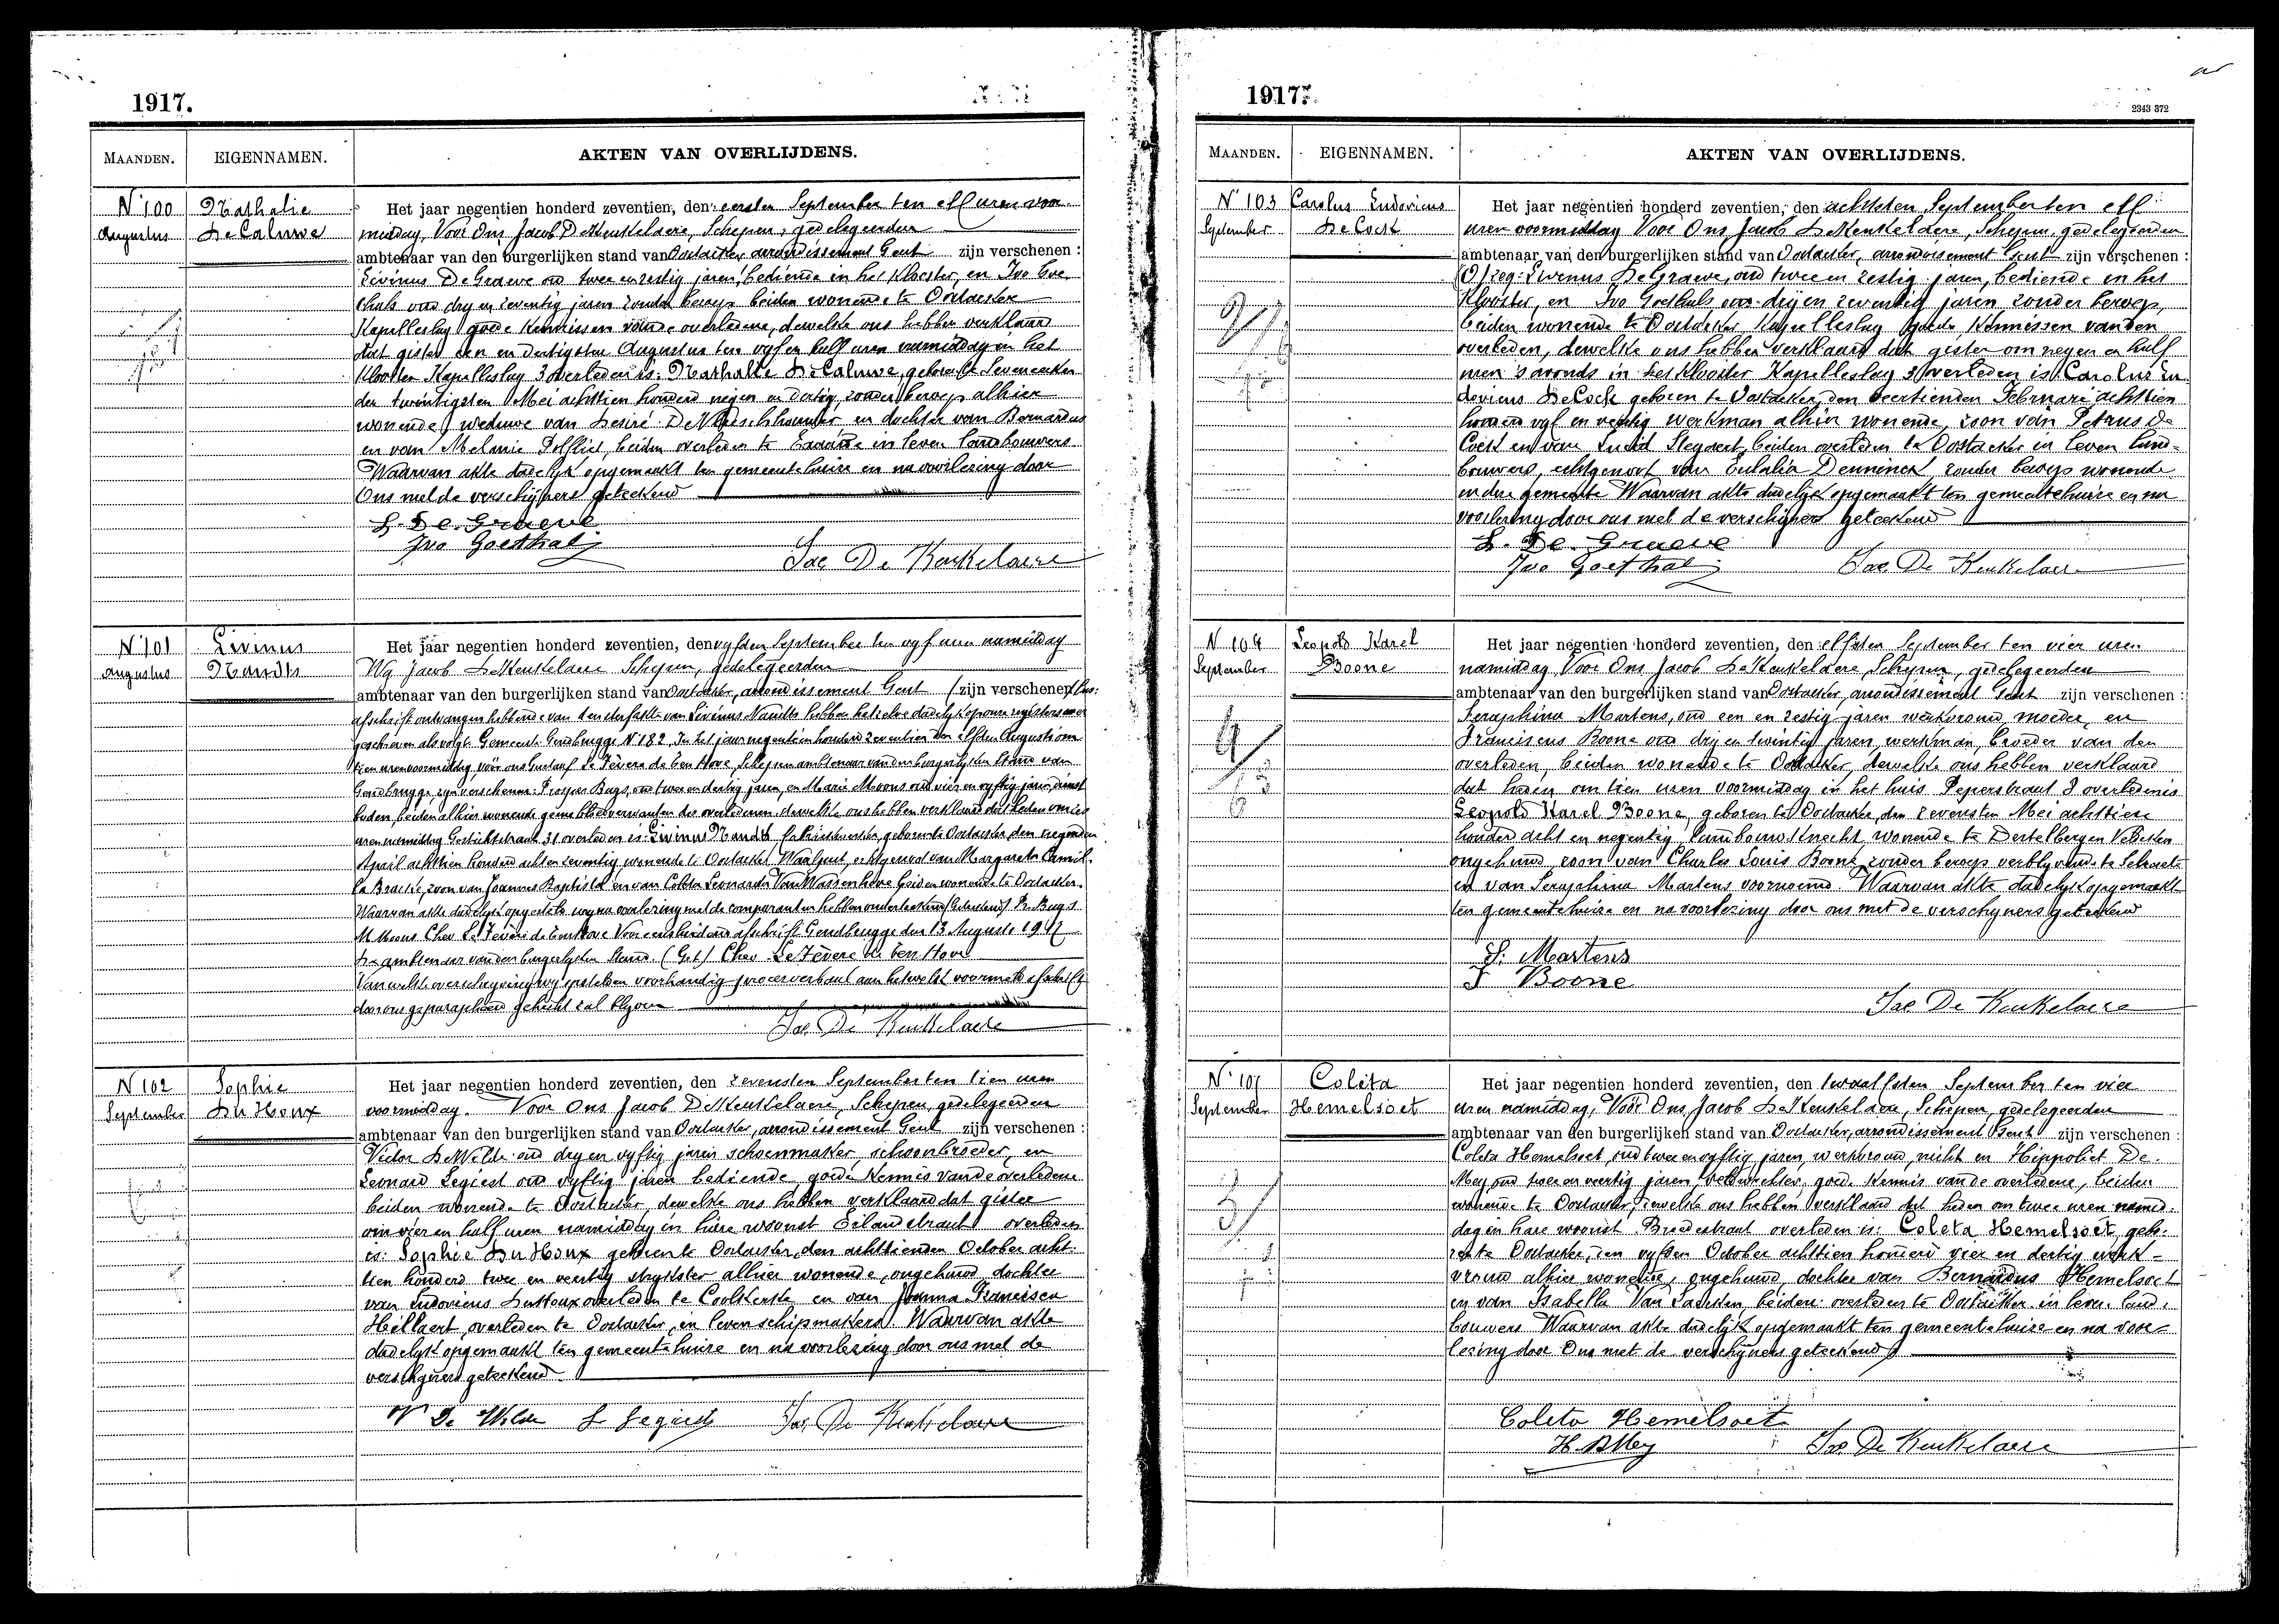 1917.
MAANDEN. EIGENNAMEN. AKTEN VAN OVERLIJDENS.
N° 100 Nathalie Het jaar negentien honderd zeventien, den eersten September ten elf uren voor-
Augustus De Caluwe middag, Voor Ons Jacob De Keukelaere, Schepen, gedelegeerden
ambtenaar van den burgerlijken stand van Oostacker, arrondissement Gent zijn verschenen :
Livinus De Graeve oud twee en zestig jaren, bediende in het Klooster, en Ivo Goe
thals oud dry en zeventig jaren zonder beroep beiden wonende te Oostacker
Kapelleslag goede kennissen van de overledene, dewelke ons hebben verklaard
dat gister een en dertigsten Augustus ten vyf en half uren namiddag in het
Klooster Kapelleslag 3 overleden is: Nathalie De Caluwe geboren te
den twintigsten Mei achttien honderd negen en dertig, zonder beroep alhier
wonende, weduwe van Desiré en dochter van Bernardus
en van Melanie beiden overleden te in leven landbouwers
Waarvan akte dadelyk opgemaakt ten gemeentehuize en na voorlezing door
Ons met de verschijners geteekend
L. De Graeve
Ivo Goethals
Jac De Keukelaere
N° 101 Livinus Het jaar negentien honderd zeventien, den vyfden September ten vyf uren namiddag
Augustus Nandts Wy Jacob De Keukelaere Schepen, gedelegeerden
ambtenaar van den burgerlijken stand van Oostacker, arrondissement Gent zijn verschenen
afschrift ontvangen hebbende van den sterfakte van Livinus Nandts hebben hetzelve dadelyk op onze registers over
geschreven als volgt: Gemeente Gendbrugge N° 182. In het jaar negentien honderd zeventien den elfden Augusti om
tien uren voormiddag, voor ons Gustaaf Le Fèvere de ten Hove, Schepen ambtenaar van den burgerlyken stand van
Gendbrugge, zyn verschenen: Prosper Buys, oud twee en dertig jaren, en Marie Moons oud vier en vyftig jaren, dienst
boden, beiden alhier wonende geene bloedverwanten des overledenen, dewelke ons hebben verklaard dat heden om
uren namiddag Gestichtstraat 31 overleden is: Livinus Nandts fabriekwerker, geboren te Oostacker, den negenden
April achttien honderd acht en zeventig wonende te Oostacker, Waalput, echtgenoot van Margareta Camil-
la Bracke, zoon van Joannes Baptista en van Coleta Leonardia Van Wassenhove beiden wonende te Oostacker.
Waarvan akte dadelyk opgesteld en na voorlezing met de comparanten hebben onderteekend (Geteekend) Pr. Buys
M. Moons Chev. Le Fèvere de ten Hove Voor eensluidend afschrift Gendbrugge den 13 Augusti 1917
De ambtenaar van den burgerlyken stand. (Get) Chev. Le Fèvere de ten Hove
Van welke overschryving wy opstellen voorhandig procesverbaal aan hetwelk voormeld afschrift
door ons geparapheerd gehecht zal blyven
Jac De Keukelaere
N° 102 Sophie Het jaar negentien honderd zeventien, den zevensten September ten tien uren
September Du Houx voormiddag. Voor Ons Jacob De Keukelaere, Schepen, gedelegeerden
ambtenaar van den burgerlijken stand van Oostacker, arrondissement Gent zijn verschenen :
Victor De Wilde oud dry en vyftig jaren schoenmaker, schoonbroeder, en
Leonard Legiest oud vyftig jaren bediende, goede kennis van de overledene
beiden wonende te Oostacker, dewelke ons hebben verklaard dat gister
om vier en half uren namiddag in hare woonst Eilandstraat overleden
is: Sophie Du Houx geboren te Oostacker, den achttienden October acht-
tien honderd twee en veertig strykster alhier wonende, ongehuwd dochter
van Ludovicus Du Houx overleden te Coolkerke en van Joanna Francisca
Hellaert, overleden te Oostacker, in leven schipmakers Waarvan akte
dadelyk opgemaakt ten gemeentehuize en na voorlezing door ons met de
verschijners geteekend
V De Wilde L Legiest Jac De Keukelaere
1917.
2343 372
MAANDEN. EIGENNAMEN. AKTEN VAN OVERLIJDENS.
N° 103 Carolus Ludovicus Het jaar negentien honderd zeventien, den achtsten September ten elf
September De Cock uren voormiddag Voor Ons Jacob De Keukelaere, Schepen, gedelegeerden
ambtenaar van den burgerlijken stand van Oostacker, arrondissement Gent zijn verschenen :
Livinus De Graeve, oud twee en zestig jaren, bediende in het
Klooster, en Ivo Goethals oud dry en zeventig jaren, zonder beroep,
beiden wonende te Oostacker Kapelleslag goede kennissen van den
overleden, dewelke ons hebben verklaard dat gister om negen en half
uren 's avonds in het klooster Kapelleslag 3 overleden is Carolus Lu
dovicus De Cock geboren te Oostacker, den veertienden Februari achttien
honderd vyf en werkman alhier wonende, zoon van Petrus De
Cock en van Lucia Steyaert, beiden overleden te Oostacker in leven land-
bouwers, echtgenoot van Eulalia Denninck zonder beroep wonende
in deze gemeente Waarvan akte dadelyk opgemaakt ten gemeentehuize en na
voorlezing door ons met de verschijners geteekend
L. De Graeve
Ivo Goethals Jac De Keukelaere
N° 104 Leopold Karel Het jaar negentien honderd zeventien, den elfsten September ten vier uren
September Boone namiddag Voor Ons Jacob De Keukelaere, Schepen, gedelegeerden
ambtenaar van den burgerlijken stand van Oostacker, arrondissement Gent zijn verschenen :
Seraphina Martens, oud een en zestig jaren werkvrouw, moeder, en
Franciscus Boone oud dry en twintig jaren, werkman, broeder van den
overleden, beiden wonende te Oostacker, dewelke ons hebben verklaard
dat heden om tien uren voormiddag in het huis Peperstraat 8 overleden is
Leopold Karel Boone, geboren te Oostacker, den zevensten Mei achttien
honderd acht en negentig, landbouwknecht, wonende te Destelbergen
ongehuwd, zoon van Charles Louis Boone zonder beroep verblyvende te Selzaete
en van Seraphina Martens voornoemd. Waarvan akte dadelyk opgemaakt
ten gemeentehuize en na voorlezing door ons met de verschyners geteekend
S. Martens
F Boone
Jac De Keukelaere
N° 105 Coleta Het jaar negentien honderd zeventien, den twaalfsten September ten vier
September Hemelsoet uren namiddag, Voor Ons Jacob De Keukelaere, Schepen, gedelegeerden
ambtenaar van den burgerlijken stand van Oostacker, arrondissement Gent zijn verschenen :
Coleta Hemelsoet, oud twee en vyftig jaren, werkvrouw, nicht en Hippoliet De
Mey oud twee en veertig jaren, goede kennis van de overledene, beiden
wonende te Oostacker, dewelke ons hebben verklaard dat heden om twee uren namid-
dag in hare woonst Breedestraat overleden is: Coleta Hemelsoet, gebo-
ren te Oostacker, den vyfden October achttien honderd vier en dertig werk-
vrouw alhier wonende, ongehuwd, dochter van Bernardus Hemelsoet
en van Isabella Van beiden overleden te Oostacker in leven land-
bouwers Waarvan akte dadelyk opgemaakt ten gemeentehuize en na voor
lezing door Ons met de verschijners geteekend
Coleta Hemelsoet
H. DMey Jac De Keukelaere